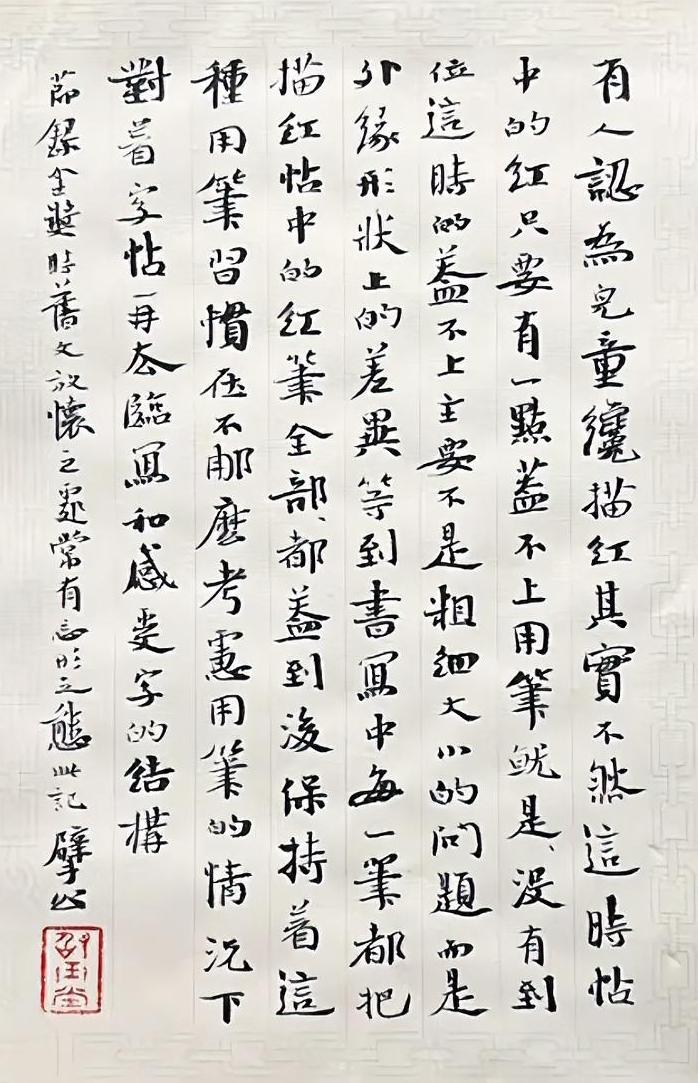 有人認為兒童纔描紅其實不然這時帖
中的紅只要有一點蓋不上用筆就是、沒有到
位這時的蓋不上主要不是粗細大小的問題而是
外緣形狀上的差異等到書寫中每一筆都把
描紅帖中的紅筆全部、都蓋到後保持着這
種用筆習慣在不那麼考慮用筆的情況下
對着字帖再去臨寫和感受字的結構
節錄金奬時舊文放懷之處常有忘形之態此記 擘公